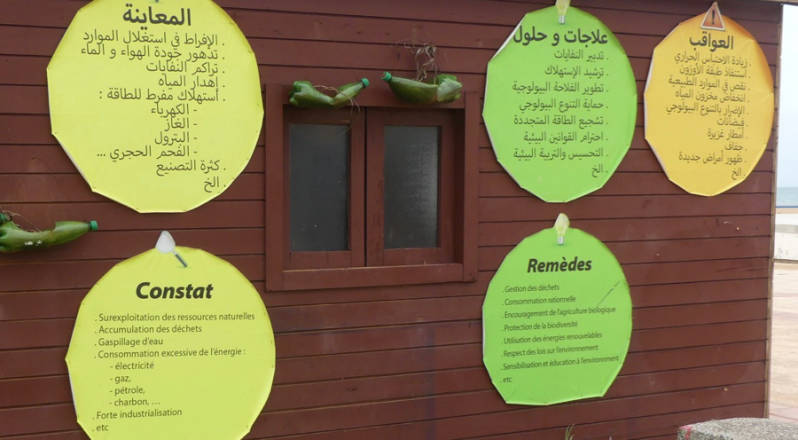 المعاينة
. الإفراط في استغلال الموارد
. تدهور جودة الهواء و الماء
. تراكم النفايات
. إهدار المياه
. استهلاك مفرط للطاقة :
- الكهرباء
- الغاز
- البترول
- الفحم الحجري ...
. كثرة التصنيع
. الخ
علاجات و حلول
. تدبير النفايات
. ترشيد الإستهلاك
. تطوير الفلاحة البيولوجية
. حماية التنوع البيولوجي
. تشجيع الطاقة المتجددة
. احترام القوانين البيئية
. التحسيس والتربية البيئية
. الخ
العواقب
. زيادة الاحتباس الحراري
. استنفاد طبقة الأوزون
. نقص في الموارد الطبيعية
. انخفاض مخزون المياه
. الإضرار بالتنوع البيولوجي
. فيضانات
. أمطار غزيرة
. جفاف
. ظهور أمراض جديدة
. الخ
Constat
. Surexploitation des ressources naturelles
. Accumulation des déchets
. Gaspillage d'eau
. Consommation excessive de l'énergie :
- électricité
- gaz,
- pétrole,
- charbon, ...
. Forte industrialisation
. etc
Remèdes
. Gestion des déchets
. Consommation rationnelle
. Encouragement de l'agriculture biologique
. Protection de la biodiversité
. Utilisation des énergies renouvelables
. Respect des lois sur l'environnement
. Sensibilisation et éducation à l'environnement
. etc